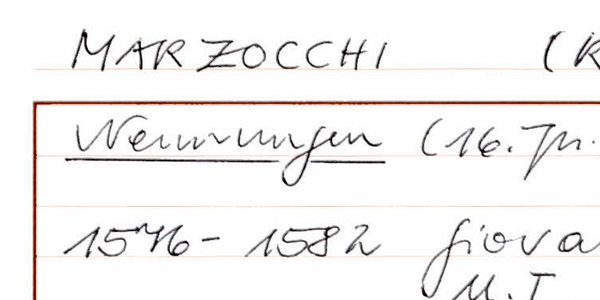 MARZOCCHI (R
Nennungen (16. Jh.
1576 - 1582 Giova
M. T